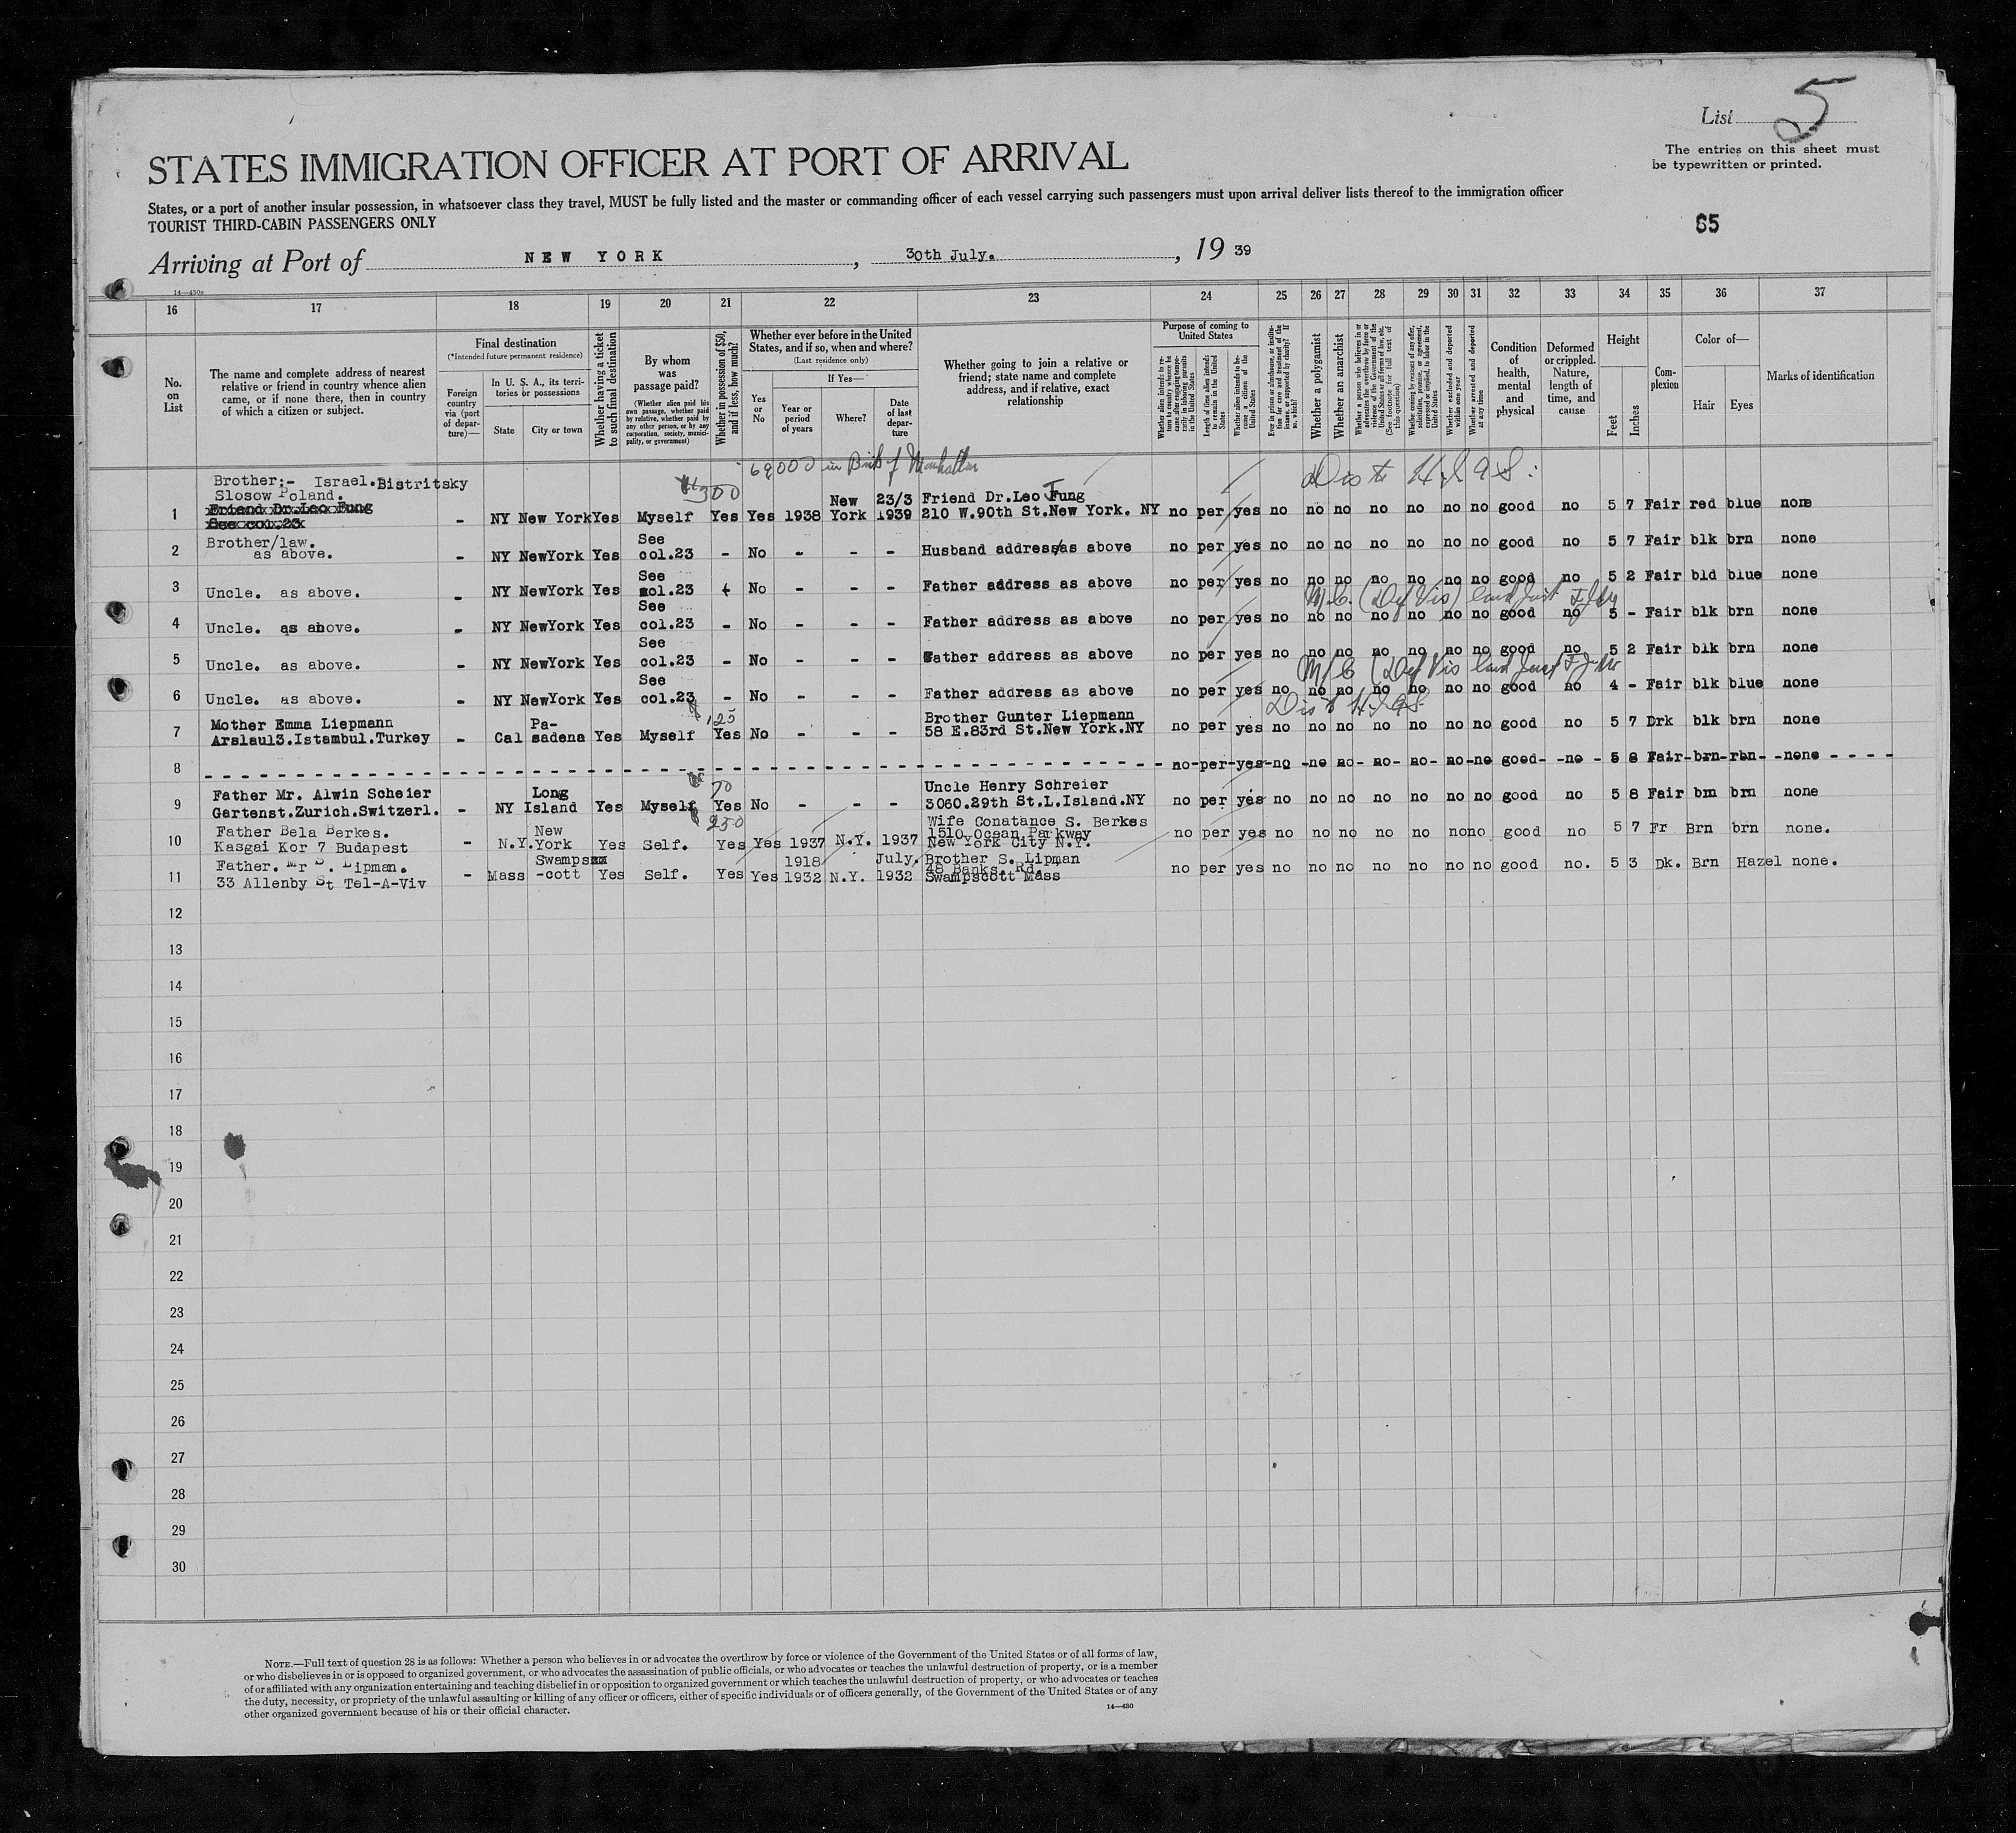 List 5
The entries on this sheet must
be typewritten or printed.
STATES IMMIGRATION OFFICER AT PORT OF ARRIVAL
States, or a port of another insular possession, in whatsoever class they travel, MUST be fully listed and the master or commanding officer of each vessel carrying such passengers must upon arrival deliver lists thereof to the immigration officer
TOURIST THIRD-CABIN PASSENGERS ONLY
65
Arriving at Port of NEW YORK, 30th July., 19 39
14—430c
16 17 18 19 20 21 22 23 24 25 26 27 28 29 30 31 32 33 34 35 36 37
No.
on
List
The name and complete address of nearest
relative or friend in country whence alien
came, or if none there, then in country
of which a citizen or subject.
Final destination
(*Intended future permanent residence)
Foreign
country
via (port
of depar-
ture)—
In U. S. A., its terri-
tories or possessions
State
City or town
Whether having a ticket
to such final destination
By whom
was
passage paid?
(Whether alien paid his
own passage, whether paid
by relative, whether paid by
any other person, or by any
corporation, society, munici-
pality, or government)
Whether in possession of $50,
and if less, how much?
Whether ever before in the United
States, and if so, when and where?
(Last residence only)
Yes
or
No
If Yes—
Year or
period
of years
Where?
Date
of last
depar-
ture
Whether going to join a relative or
friend; state name and complete
address, and if relative, exact
relationship
Purpose of coming to
United States
Whether alien intends to re-
turn to country whence he
came after engaging tempo-
rarily in laboring pursuits
in the United States
Length of time alien intends
to remain in the United
States
Whether alien intends to be-
come a citizen of the
United States
Ever in prison or almshouse, or institu-
tion for care and treatment of the
insane, or supported by charity? If
so, which?
Whether a polygamist
Whether an anarchist
Whether a person who believes in or
advocates the overthrow by force or
violence of the Government of the
United States or all forms of law, etc.
(See footnote for full text of
this question)
Whether coming by reason of any offer,
solicitation, promise, or agreement,
expressed or implied, to labor in the
United States
Whether excluded and deported
within one year
Whether arrested and deported
at any time
Condition
of
health,
mental
and
physical
Deformed
or crippled.
Nature,
length of
time, and
cause
Height
Feet
Inches
Com-
plexion
Color of—
Hair
Eyes
Marks of identification
69000 in Bank of Manhattan
Dis to H.I.A.S.
300
Brother:- Israel.Bistritsky
Slosow Poland.
Friend Dr.Leo Fung
See col.23
1 - NY New York Yes Myself Yes Yes 1938 New York 23/3 1939 Friend Dr.Leo Jung
210 W.90th St.New York. NY no per yes no no no no no no no good no 5 7 Fair red blue none
2 Brother/law.
as above. - NY NewYork Yes See col.23 - No - - - Husband address as above no per yes no no no no no no no good no 5 7 Fair blk brn none
3 Uncle. as above. - NY NewYork Yes See col.23 - No - - - Father address as above no per yes no no no no no no no good no 5 2 Fair bld blue none
4 Uncle. as above. - NY NewYork Yes See col.23 - No - - - Father address as above no per yes no no no no no no no good no 5 - Fair blk brn none
5 Uncle. as above. - NY NewYork Yes See col.23 - No - - - Father address as above no per yes no no no no no no no good no 5 2 Fair blk brn none
M/C (Def Vis
6 Uncle. as above. - NY NewYork Yes See col.23 - No - - - Father address as above no per yes no no no no no no no good no 4 - Fair blk blue none
Dis to H.I.A.S.
125
7 Mother Emma Liepmann
Arslaul3.Istambul.Turkey - Cal Pa-sadena Yes Myself Yes No - - - Brother Gunter Liepmann
58 E.83rd St.New York.NY no per yes no no no no no no no good no 5 7 Drk blk brn none
8 no-per-yes-no no no no no no no good no 5 8 Fair-brn-rbn none
70
9 Father Mr. Alwin Scheier
Gartenst.Zurich.Switzerl. - NY Long Island Yes Myself Yes No - - - Uncle Henry Schreier
3060.29th St.L.Island.NY no per yes no no no no no no no good no 5 8 Fair bm brn none
250
10 Father Bela Berkes.
Kasgai Kor 7 Budapest - N.Y. New York Yes Self. Yes Yes 1937 N.Y. 1937 Wife Conatance S. Berkes
1510 Ocean Parkway
New York City N.Y. no per yes no no no no no no no good no 5 7 Fr Brn brn none.
11 Father. Mr D. Lipman.
33 Allenby St Tel-A-Viv - Mass Swamps-cott Yes Self. Yes Yes 1918 1932 N.Y. July. 1932 Brother S. Lipman
48 Banks. Rd.
Swampscott Mass no per yes no no no no no no no good no. 5 3 Dk. Brn Hazel none.
12
13
14
15
16
17
18
19
20
21
22
23
24
25
26
27
28
29
30
NOTE.—Full text of question 28 is as follows: Whether a person who believes in or advocates the overthrow by force or violence of the Government of the United States or of all forms of law,
or who disbelieves in or is opposed to organized government, or who advocates the assassination of public officials, or who advocates or teaches the unlawful destruction of property, or is a member
of or affiliated with any organization entertaining and teaching disbelief in or opposition to organized government or which teaches the unlawful destruction of property, or who advocates or teaches
the duty, necessity, or propriety of the unlawful assaulting or killing of any officer or officers, either of specific individuals or of officers generally, of the Government of the United States or of any
other organized government because of his or their official character.
14—430